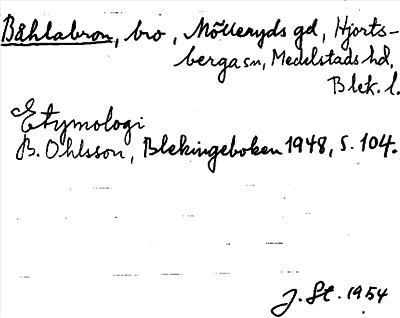 Båhlabron, bro, Mölleryds gd, Hjorts-
berga sn, Medelstads hd,
Blek. l.
Etymologi
B. Ohlsson, Blekingeboken 1948, s. 104.
J. St. 1954